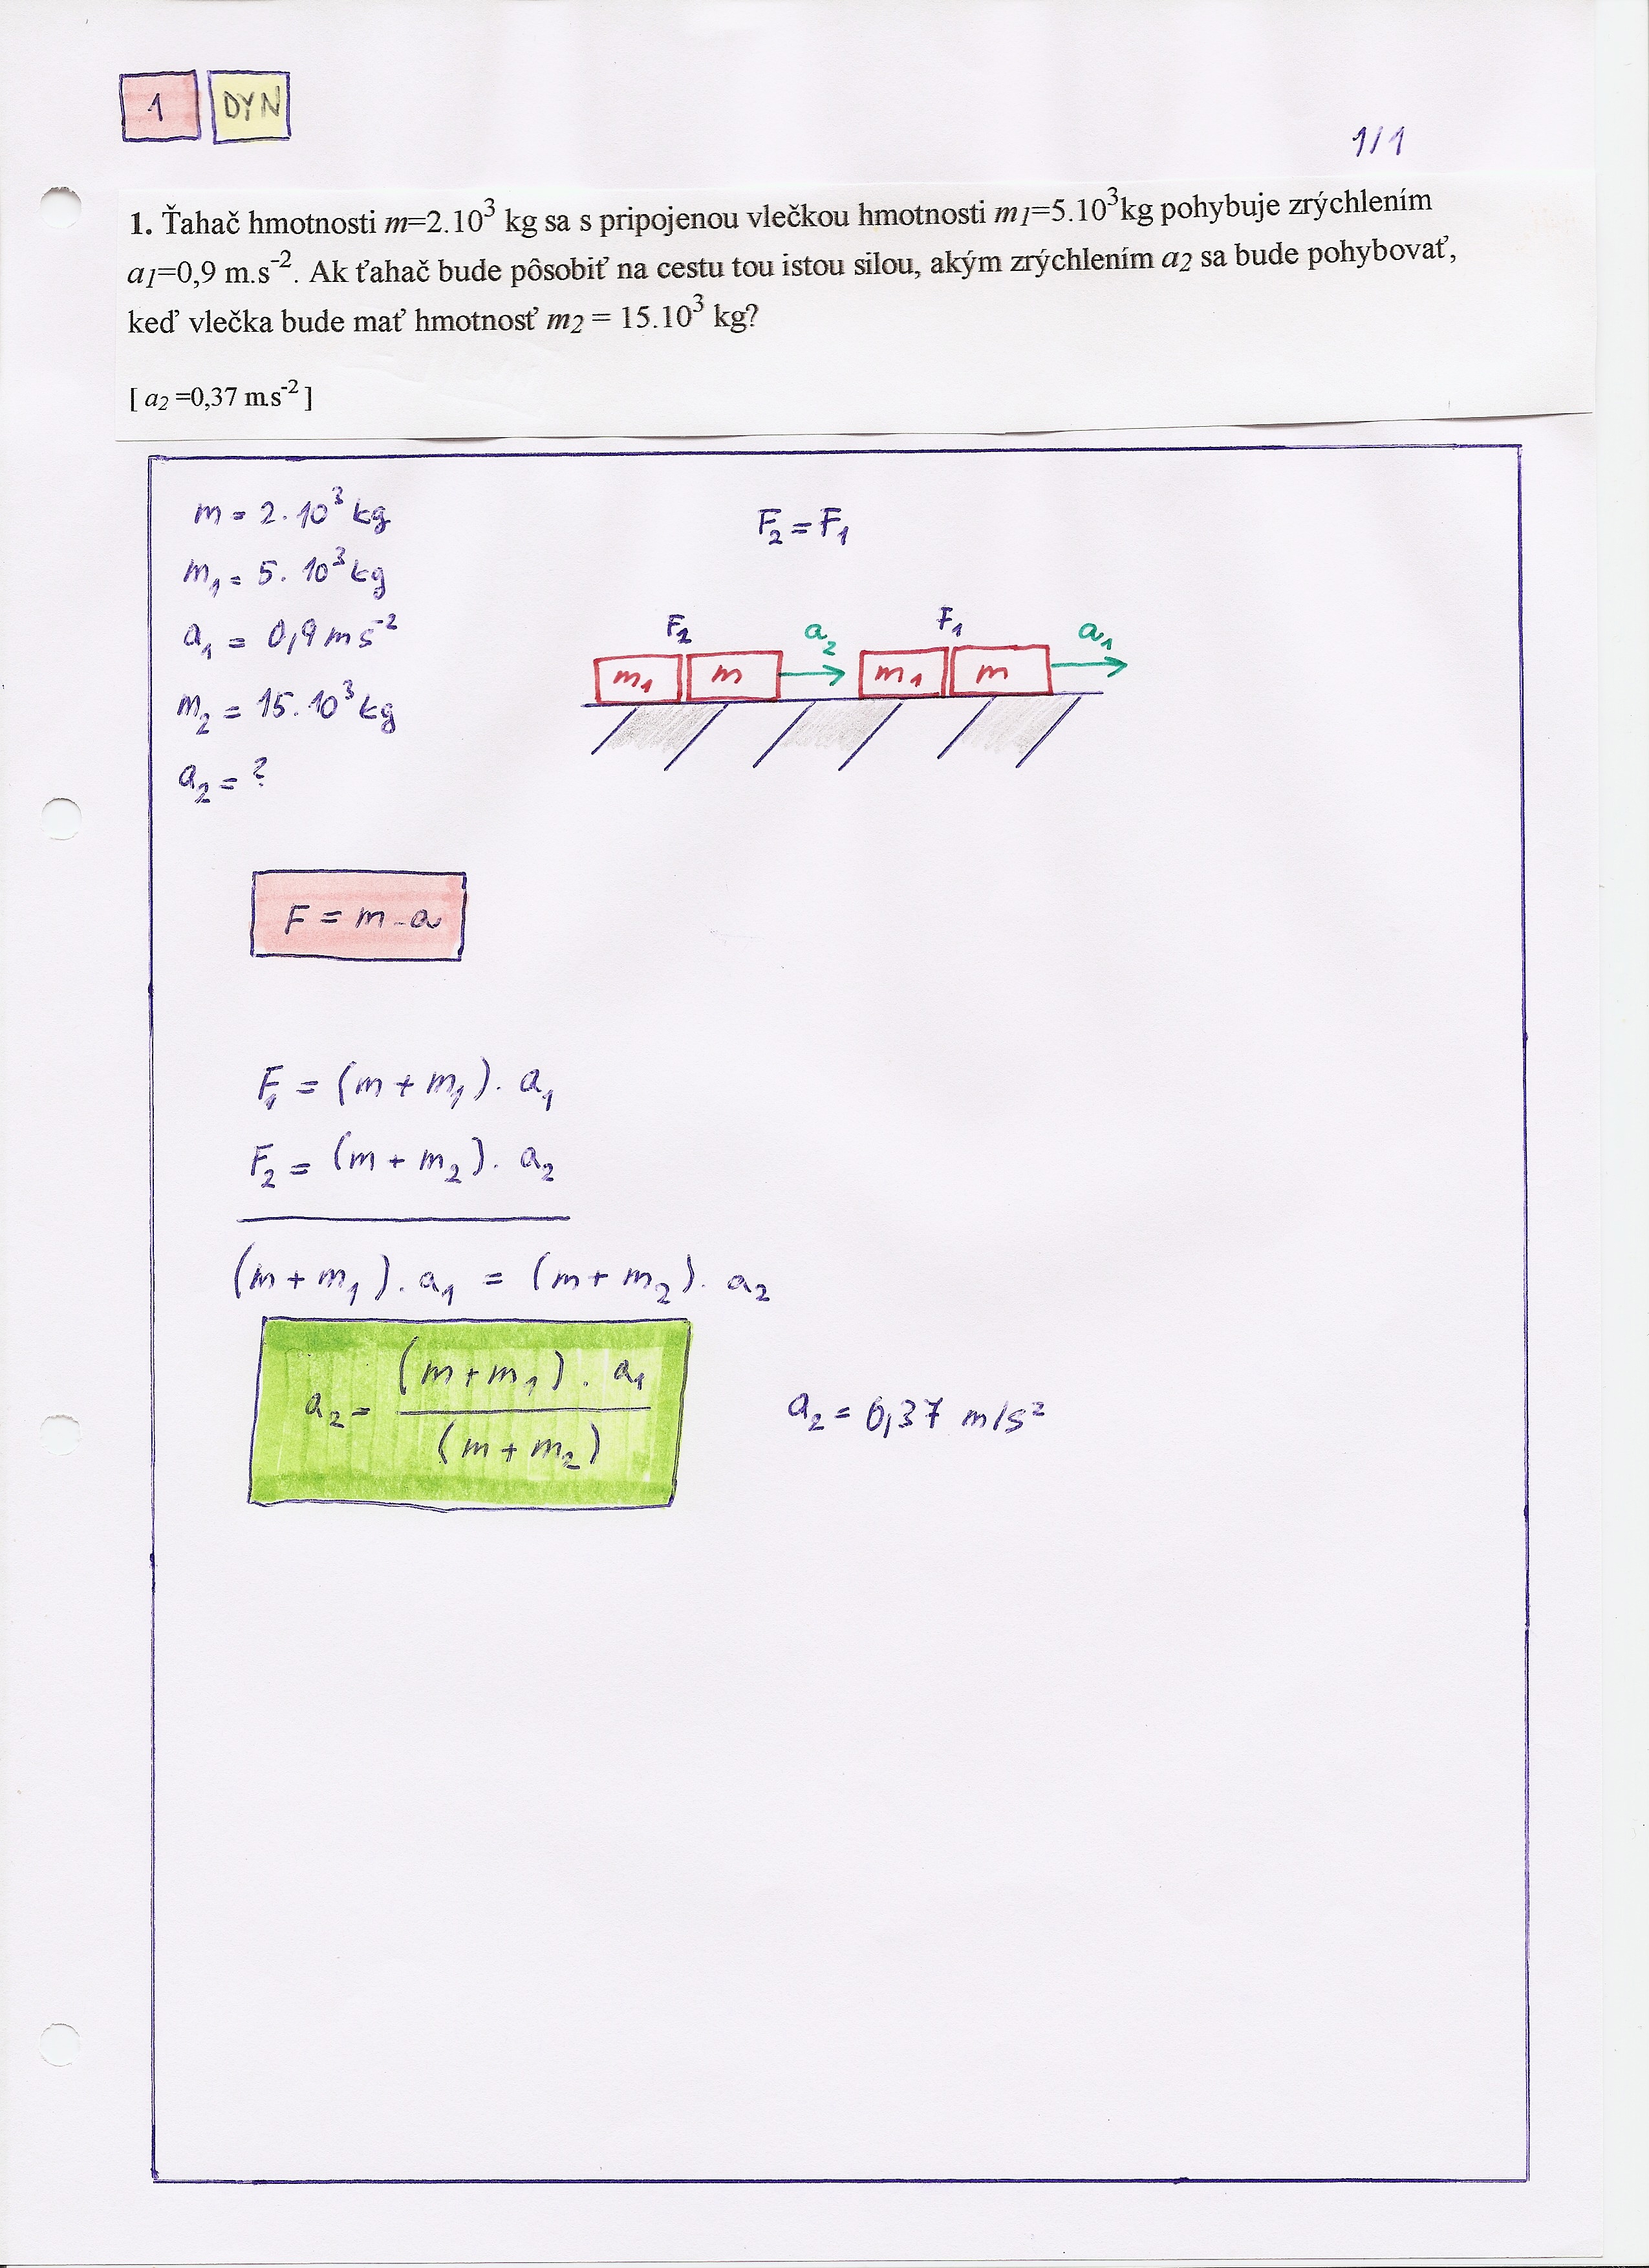 1 DYN
1/1
1. Ťahač hmotnosti m=2.10³ kg sa s pripojenou vlečkou hmotnosti m1=5.10³kg pohybuje zrýchlením
a1=0,9 m.s⁻². Ak ťahač bude pôsobiť na cestu tou istou silou, akým zrýchlením a2 sa bude pohybovať,
keď vlečka bude mať hmotnosť m2 = 15.10³ kg?
[ a2 =0,37 m.s⁻² ]
m = 2.10³ kg
F₂ = F₁
m₁ = 5. 10³ kg
a₁ = 0,9 m s⁻²
F₂ a₂ F₁ a₁
m₁ m m₁ m
m₂ = 15.10³ kg
a₂ = ?
F = m . a
F₁ = (m + m₁) . a₁
F₂ = (m + m₂) . a₂
(m + m₁) . a₁ = (m + m₂) . a₂
a₂ = (m + m₁) . a₁ / (m + m₂)
a₂ = 0,37 m/s²